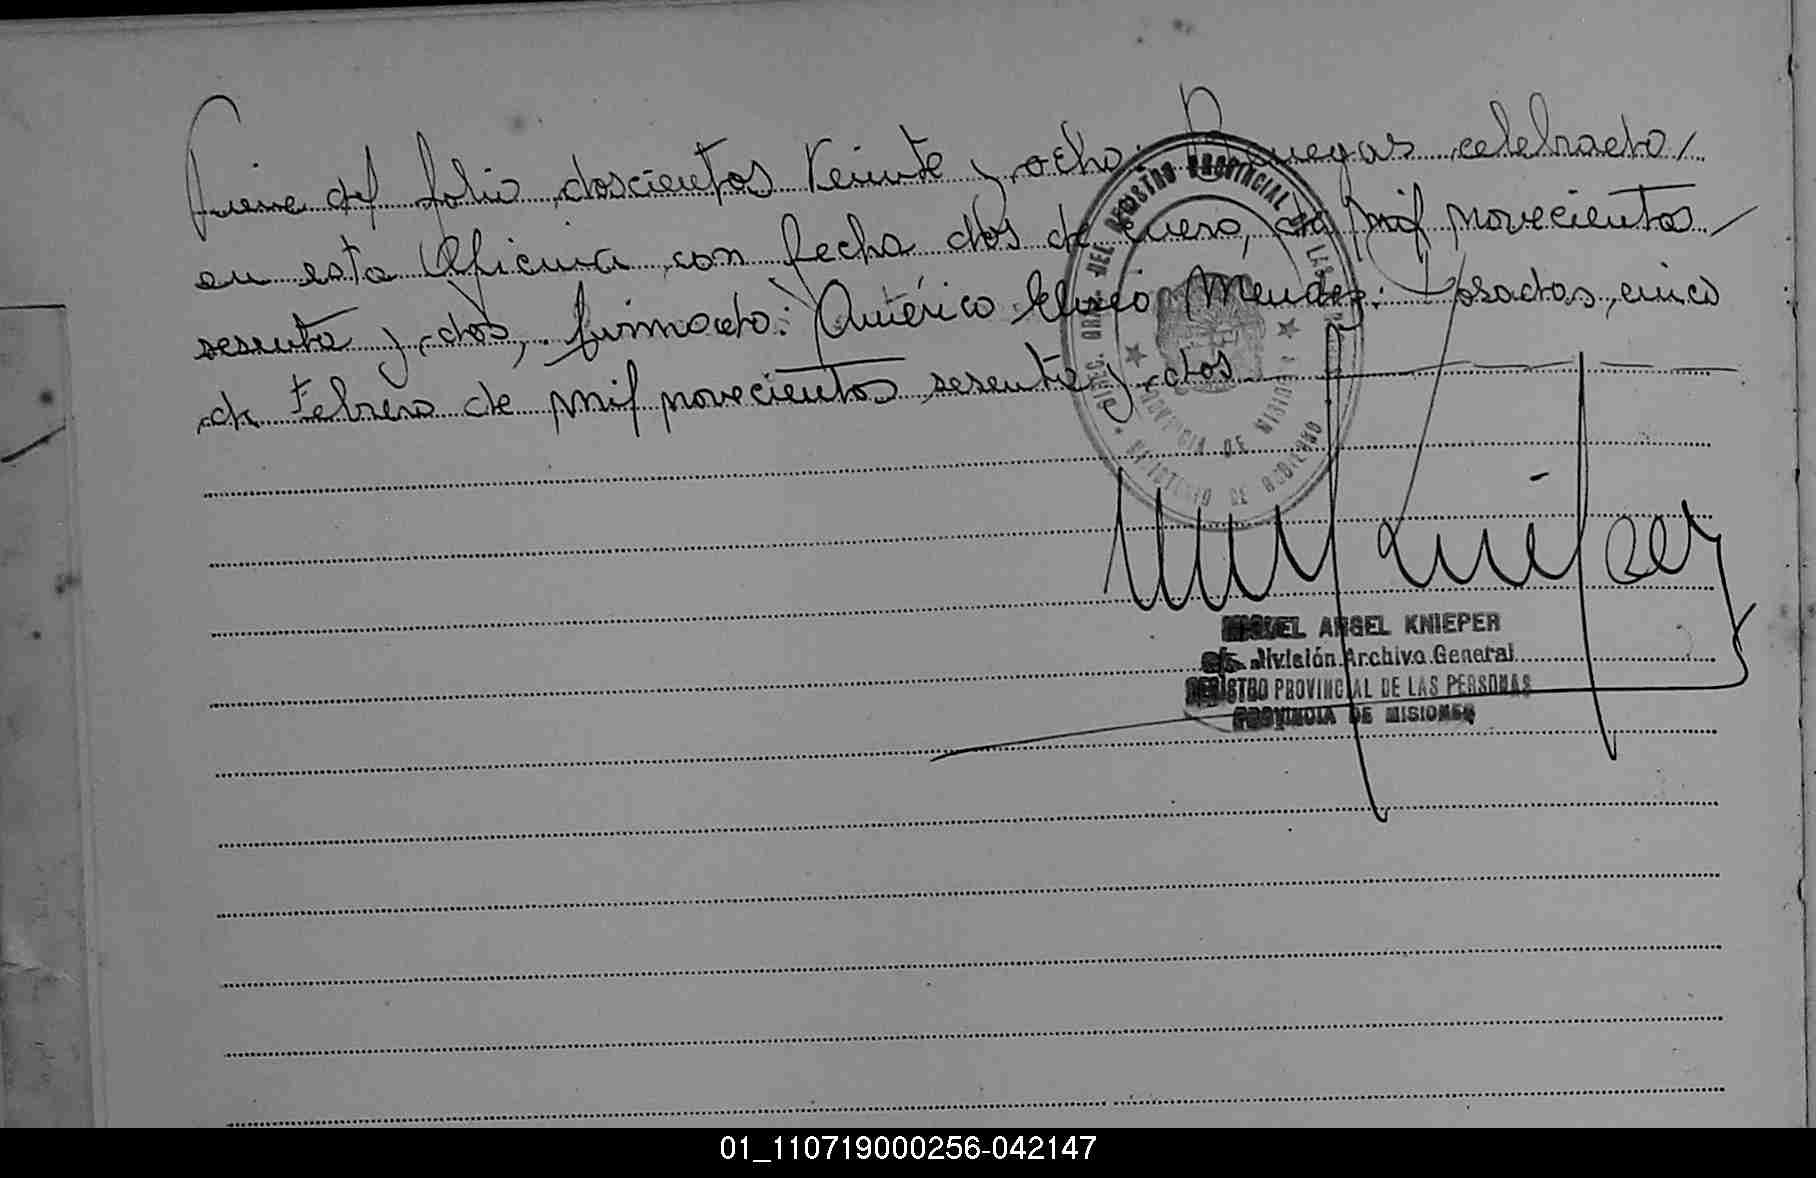 Viene del folio doscientos veinte y ocho: celebrado
en esta Oficina con fecha dos de enero, de mil novecientos
sesenta y dos, firmado: Américo Eliseo Mendez. Posadas, cinco
de Febrero de mil novecientos sesenta y dos
DIREC. GRAL. DEL REGISTRO PROVINCIAL DE LAS
PROVINCIA DE MISIONES
MINISTERIO DE GOBIERNO
MIGUEL ANGEL KNIEPER
División Archivo General
REGISTRO PROVINCIAL DE LAS PERSONAS
PROVINCIA DE MISIONES
01_110719000256-042147